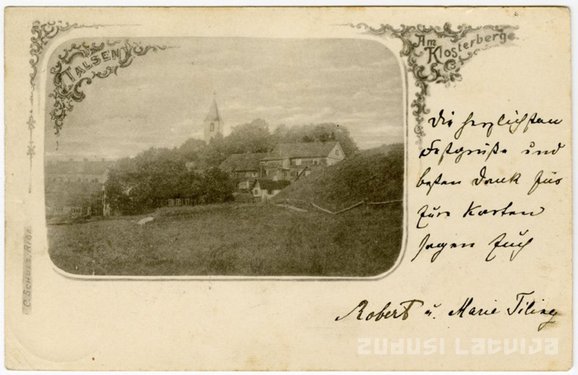 TALSEN
Am
Klosterberge
Die herzlichsten
Festgrüße und
besten Dank für
Karten
sagen Euch
Robert u. Marie Tiling
C. Schulz, Riga
Zudusi Latvija